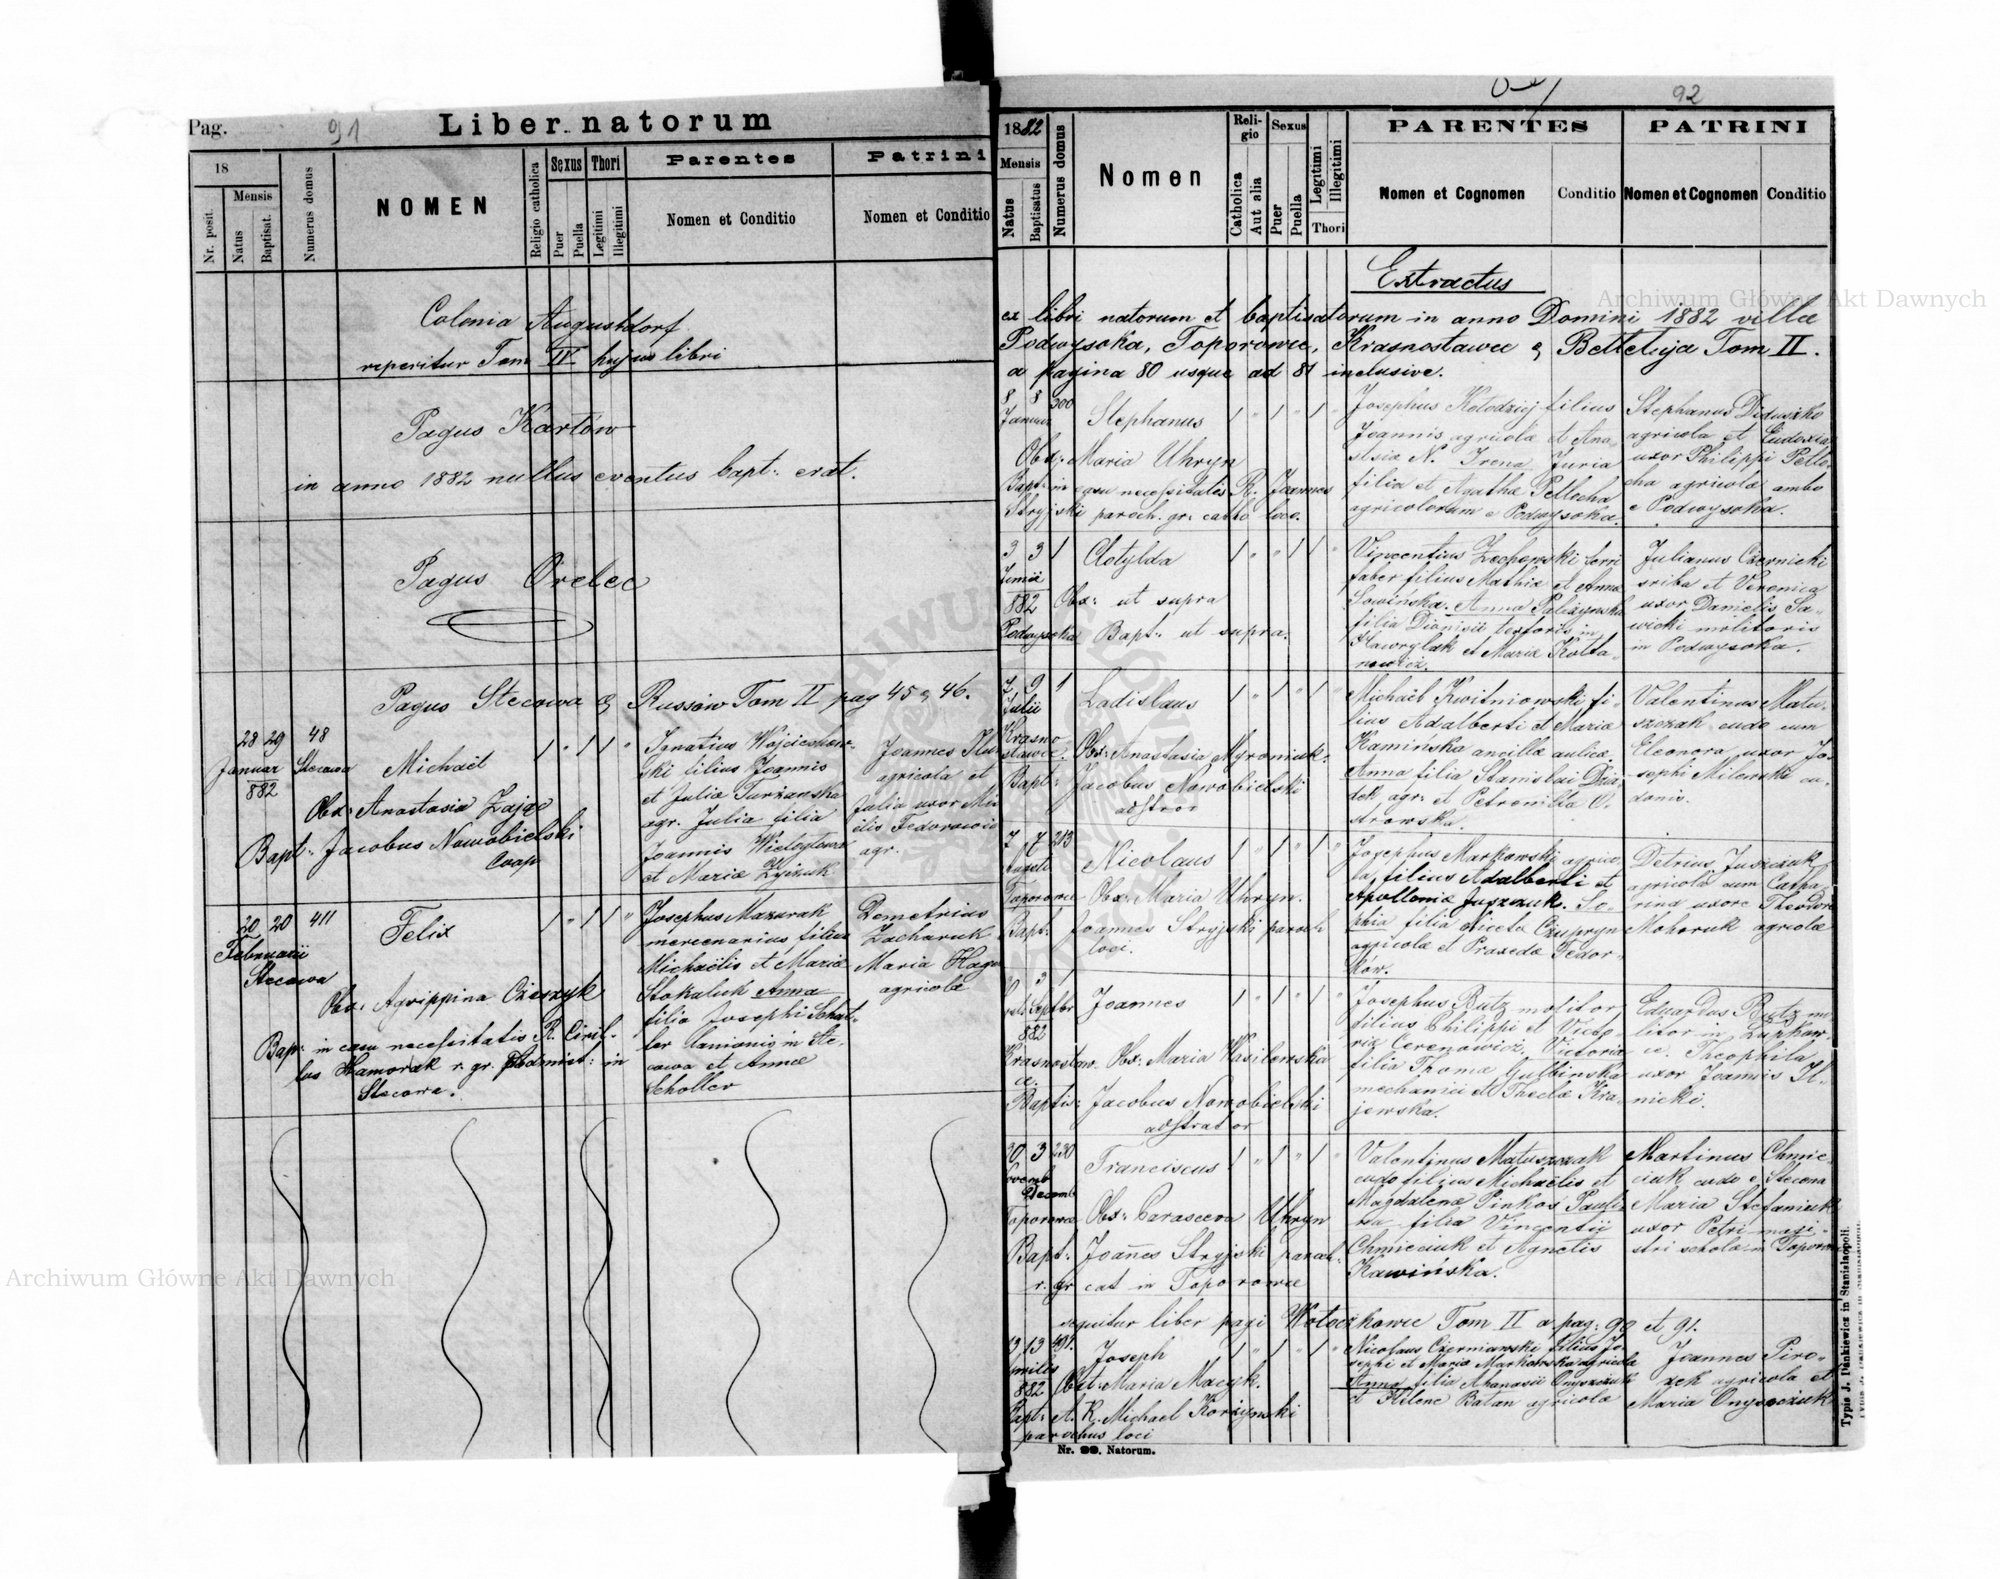 Pag. 91 Liber natorum
18
Mensis
Nr. posit.
Natus
Baptisat.
Numerus domus
NOMEN
Religio catholica
Sexus
Puer
Puella
Thori
Legitimi
Illegitimi
Parentes
Nomen et Conditio
Patrini
Nomen et Conditio
Colonia Augustdorf
reperitur Tom IV hujus libri
Pagus Karłów
in anno 1882 nullus eventus bapt: erat.
Pagus Orelec
Pagus Stecowa & Russów Tom II pag 45 & 46.
28 29 48
Januar Stecowa
882
Michaël
Obx: Anastasia Zając
Bapt: Jacobus Nowobielski
Coop
Ignatius Wojciechow-
ski filius Joannis
et Julia Turzańska
agr. Julia filia
Joannis
et Maria
Joannes
agricola et
Julia uxor Mi
Fedorowic
agr.
20 20 411
Februarii
Stecowa
Felix
Obx: Agrippina
Bapt: in casu necessitatis R. Ciril-
lus Hamorak r. gr. Administ: in
Stecowa.
Josephus Mazurak
mercenarius filius
Michaëlis et Maria
Stokaluk Anna
filia Josephi Schat-
ler in Ste-
cowa et Anna
Scholler
Demetrius
Zacharuk
Maria
agricola
92
1882
Mensis
Natus
Baptisatus
Numerus domus
Nomen
Religio
Catholica
Aut alia
Sexus
Puer
Puella
Legitimi
Illegitimi
Thori
PARENTES
Nomen et Cognomen
Conditio
PATRINI
Nomen et Cognomen
Conditio
Extractus
ex libri natorum et baptisatorum in anno Domini 1882 villæ
Podwysoka, Toporowce, Krasnostawce & Belleluja Tom II.
a pagina 80 usque ad 81 inclusive.
8 8 300
Januar
Stephanus
Obx: Maria Uhryn
Bapt: in casu necessitatis R. Joannes
Stryjski paroch. gr. cath. loco.
Josephus Kołodziej filius
Joannis agricola et Ana-
stsia N. Irena Juria
filia et Agatha Pellecha
agricolorum e Podwysoka.
Stephanus Diduszko
agricola et Eudoxia
uxor Philippi Pelle-
cha agricola ambo
e Podwysoka.
3 3 1
Junii
882
Podwysoka
Clotylda
Obx: ut supra
Bapt: ut supra.
Vincentius ferri
faber filius Mathia et Anna
Sowińska. Anna
filia Dionisii textoris in
Hawrylak et Maria Kołta-
nowicz.
Julianus Czernicki
sriba et Veronica
uxor Danielis Sa-
wicki molitoris
in Podwysoka.
7 9 1
Julii
Krasno
stawce.
Ladislaus
Obx: Anastasia Myroniuk.
Bapt: Jacobus Nowobielski
adstror
Michaël Kwitniowski fi-
lius Adalberti et Maria
Kamińska ancilla aulica.
Anna filia Stanislai Dzia-
dek agr. et Petronilla O-
strowska.
Valentinus Matu-
szczak cudo cum
Eleonora uxor Jo-
sephi Milewski cu-
donis.
7 7 213
Augusti
Toporowce
Nicolaus
Obx: Maria Uhryn.
Bapt: Joannes Stryjski paroch
loci.
Josephus Markowski agrico-
la, filius Adalberti et
Apollonia Juszczuk. So-
phia filia Niceta Czupryn
agricola et Praxeda Fedor-
ków.
Detrius Juszczuk
agricola cum Catha-
rina uxore Theodori
Mohoruk agricolæ
3 1
Septbr
882
Krasnostaw-
ce.
Joannes
Obx: Maria Wasilewska
Baptis: Jacobus Nowobielski
adstrator
Josephus Butz molitor,
filius Philippi et Victo-
ria Cerenowicz. Victoria
filia Thoma Gulbinska
mechanici et Thecla Kra-
jewska.
Eduardus Butz mo-
litor in
ce. Theophila
uxor Joannis Il-
nicki.
30 3 230
Novemb
Decemb
Toporowce
Franciscus
Obx: Parasceva Uhryn
Bapt: Joannes Stryjski paroch.
r. gr cat in Toporowce
Valentinus Matuszczak
cudo filius Michaëlis et
Magdalena Pinkos Pauli-
na filia Vincentii
Chmieciuk et Agnetis
Kawińska.
Martinus Chmie-
ciuk cudo e Stecowa
Maria Stefaniuk
uxor Petri magi-
stri schola in Toporow
sequitur liber pagi Wołoczkowce Tom II a pag: 90 et 91.
13 13 491.
Aprilis
882
Joseph
Obst: Maria Maczyk.
Bapt: A. R. Michael Korzynski
parochus loci
Nicolaus Czerniawski filius Jo-
sephi et Maria Markowska agricola
Anna filia Athanasii Onyszczuk
et Helene Balan agricola
Joannes Piro-
zek agricola et
Maria Onyszczuk
Nr. 99. Natorum.
Typis J. Dankiewicz in Stanislaopoli.
Archiwum Główne Akt Dawnych
Archiwum Główne Akt Dawnych